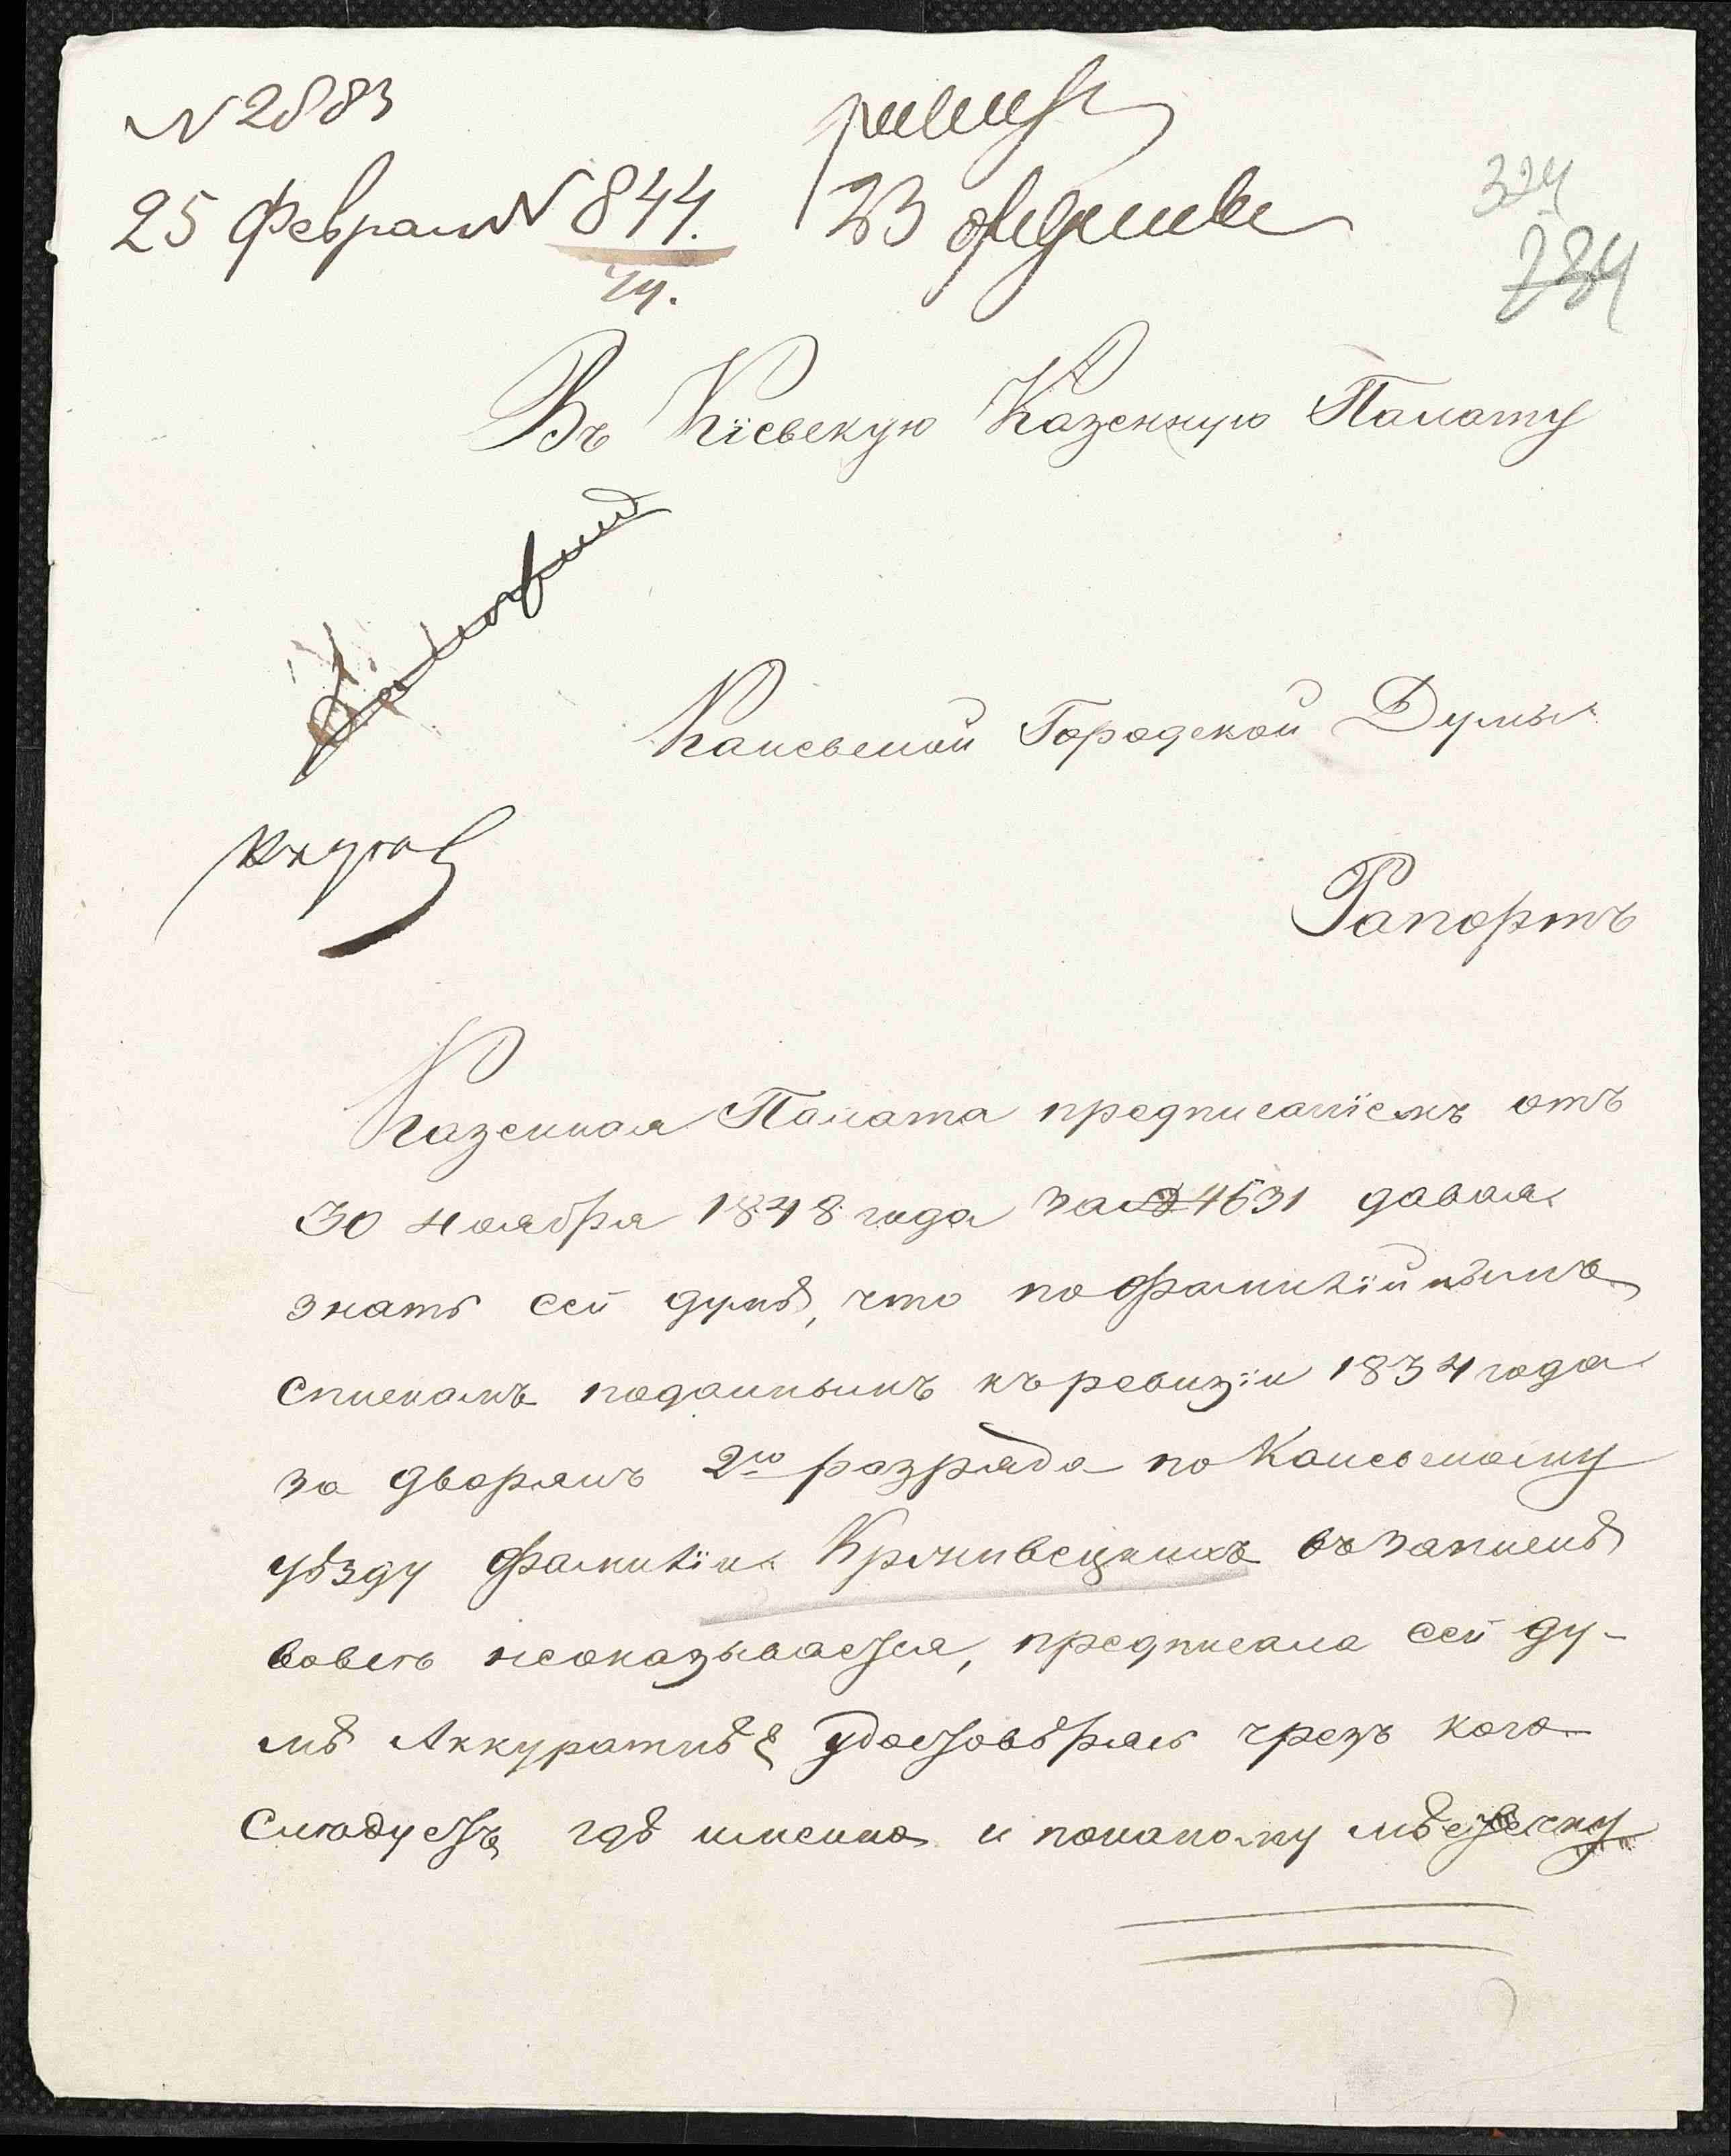 N 2883
25 Февраля N 844.
74.
23
324
284
Въ Кіевскую Казенную Палату
Каневской Городской Думы
Рапортъ
Казенная Палата предписаніемъ отъ
30 Ноября 1848 года за № 4531 давая
знать сей думѣ, что по фамилійнымъ
спискамъ поданнымъ къ ревизіи 1834 года
за дворянъ 2го разряда по Каневскому
уѣзду фамиліи Крживецкихъ въ запискѣ
вовсе неоказывается, предписала сей ду-
мѣ Аккуратнѣе удостовѣрясь чрезъ кого
Слѣдуетъ гдѣ именно и по какому мѣстечку